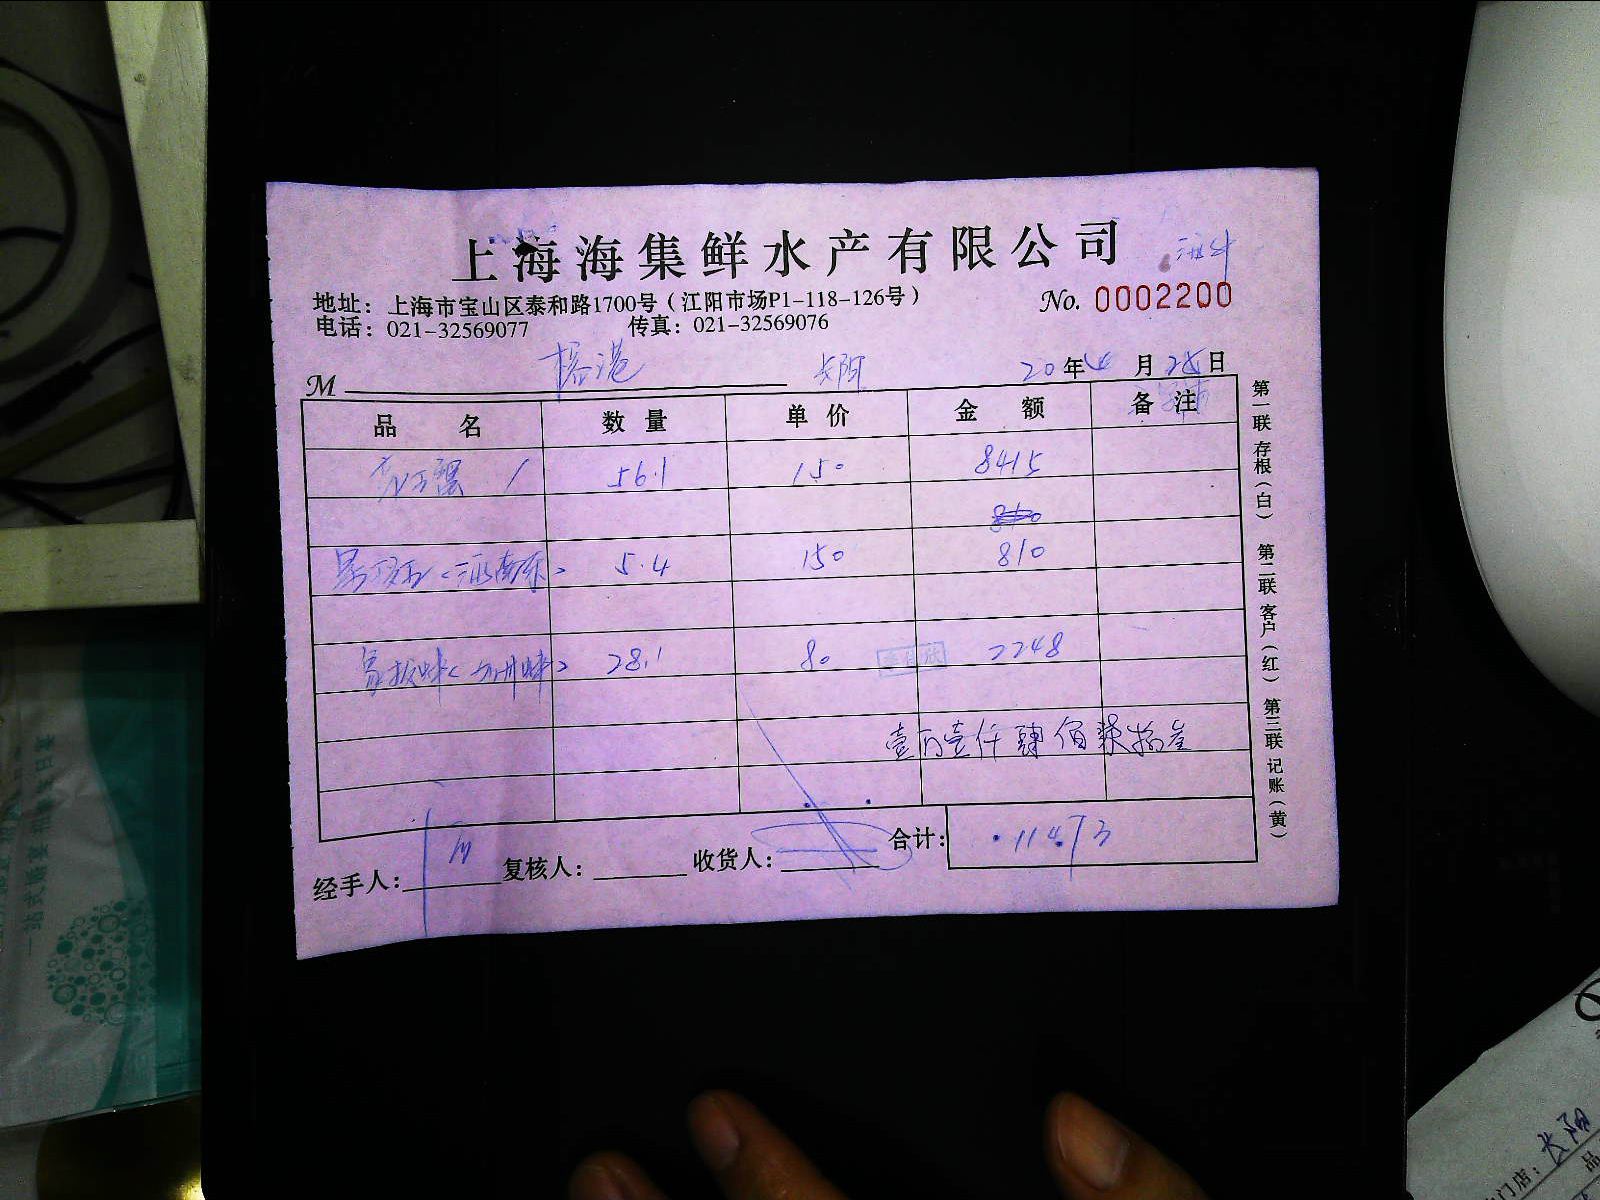 上海海集鲜水产有限公司
地址：上海市宝山区泰和路1700号（江阳市场P1-118-126号）
No. 0002200
电话：021-32569077 传真：021-32569076
M 长阳 20年4月28日
品名 数量 单价 金额 备注
56.1 150 8415
5.4 150 810
象拔蚌 28.1 80 2248
壹万壹仟肆佰柒拾叁
经手人： 复核人： 收货人： 合计：11473
第一联 存根（白） 第二联 客户（红） 第三联 记账（黄）
一站式婚宴
长阳
门店：
品